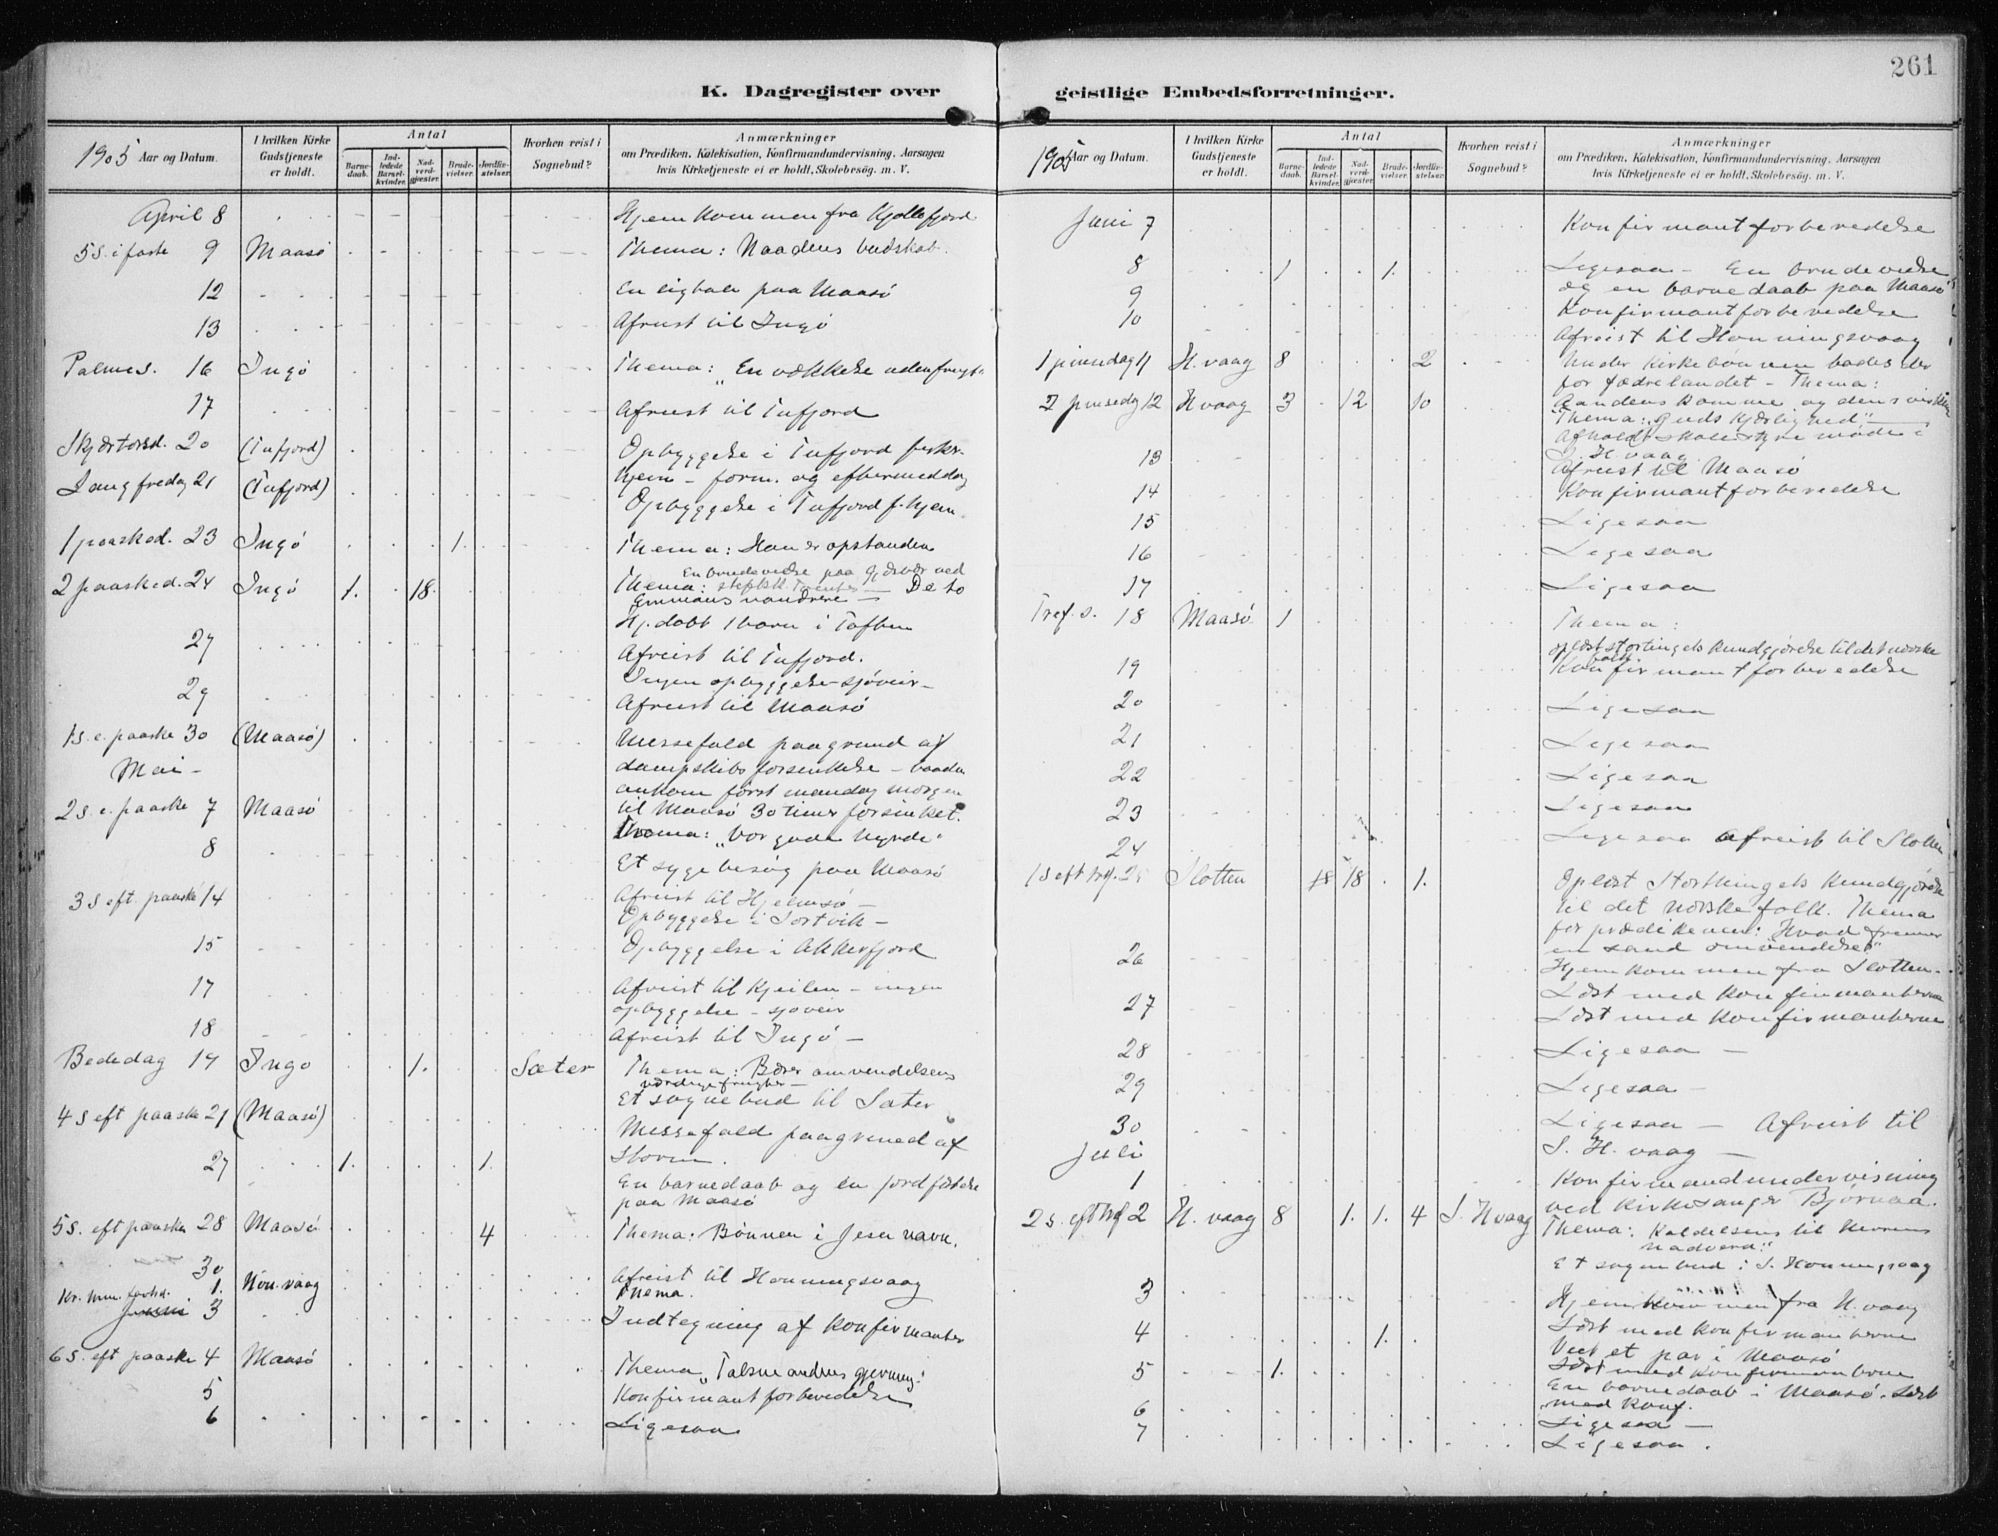 261
K. Dagregister over
1905 Aar og Datum.
I hvilken Kirke Gudstjeneste er holdt.
Antal
Barnedaab.
Indledede Barselkvinder.
Nadverdgjester.
Brudevielser.
Jordfæstelser.
Hvorhen reist i Sognebud?
Anmærkninger
om Prædiken, Katekisation, Konfirmandundervisning, Aarsagen
hvis Kirketjeneste ei er holdt, Skolebesøg. m. V.
April 8 Hjemkommen fra Kjøllefjord
5 s. i faste 9 Maasø Thema: Naadens budskab.
12 En ligtale paa Maasø
13 Afreist til Ingø
Palmes. 16 Ingø Thema: „En vækkelse uden frugt"
17 Afreist til Tufjord
Skjærtorsd. 20 (Tufjord) Opbyggelse i Tufjord
hjem – form. og eftermiddag
Langfredag 21 (Tufjord) Opbyggelse i Tufjord f. hjem
1 paasked. 23 Ingø 1. Thema: Han er opstanden
En brudevielse paa Gjesvær ved
2 paasked. 24 Ingø 1. 18. Thema: De to
Emmaus vandrere –
Hj. døbt 1 barn i
27 Afreist til Tufjord.
Ingen opbyggelse – sjøveir –
29 Afreist til Maasø
1 s. e. paaske 30 (Maasø) Messefald paagrund af
Mai – dampskibsforsinkelse – baaden
ankom først mandag morgen
2 s. e. paaske 7 Maasø til Maasø 30 timer forsinket.
Thema: „Vor gode hyrde"
8 Et sygebesøg paa Maasø
3 s eft. paaske 14 Afreist til Hjelmsø –
Opbyggelse i Sortvik –
15 Opbyggelse i Akkerfjord
17 Afreist til Kjeilen – ingen
opbyggelse – sjøveir
18 Afreist til Ingø –
Bededag 19 Ingø 1. Sæter Thema: Bærer omvendelsens
værdige frugter –
Et sognebud til Sæter
4 s eft paaske 21 (Maasø) Messefald paagrund af
storm.
27 1. 1. En barnedaab og en jordfæstelse
paa Maasø
5 s. eft paaske 28 Maasø 4 Thema: Bønnen i Jesu navn.
30 Afreist til Honningsvaag
Kr. him. farts. 1. Hon. vaag Thema.
Juni 3 Indtegning af konfirmanter
6 s. eft paaske 4 Maasø Thema „Talsmandens gjerning"
5 Konfirmantforberedelse
6 Ligesaa
geistlige Embedsforretninger.
1905 Aar og Datum.
I hvilken Kirke Gudstjeneste er holdt.
Antal
Barnedaab.
Indledede Barselkvinder.
Nadverdgjester.
Brudevielser.
Jordfæstelser.
Hvorhen reist i Sognebud?
Anmærkninger
om Prædiken, Katekisation, Konfirmandundervisning, Aarsagen
hvis Kirketjeneste ei er holdt, Skolebesøg. m. V.
Juni 7 Konfirmantforberedelse
8 1 1. Ligesaa – En brudevielse
og en barnedaab paa Maasø
9 Konfirmantforberedelse
10 Afreist til Honningsvaag
1 pinsedag 11 H. vaag 8 2 Under kirkebønnen bades der
for fædrelandet – Thema:
2 pinsedag 12 H vaag 3 12 10 Aandens komme og dens virkning
Thema: „Guds kjærlighed"
Afholdt skolestyremøde i
S. H. vaag
13 Afreist til Maasø
14 Konfirmantforberedelse
15 Ligesaa
16 Ligesaa
17 Ligesaa
Tref. s. 18 Maasø 1 Thema:
oplæst stortingets kundgjørelse til det norske
folk.
19 Konfirmantforberedelse
20 Ligesaa
21 Ligesaa
22 Ligesaa
23 Ligesaa
24 Ligesaa Afreist til Slotten
1 s eft tref. 25 Slotten 18 18 1. Oplæst Stortingets kundgjørelse
til det norske folk. Thema
for prædikenen: Hvad fremmer
en sand omvendelse"
26 Hjemkommen fra Slotten –
Læst med konfirmanterne
27 Læst med konfirmanterne
28 Ligesaa –
29 Ligesaa –
30 Ligesaa – Afreist til
Juli S. H. vaag –
1 Konfirmandundervisning
ved kirkesanger Bjørnaa.
2 s. eft tref 2 H. vaag 8 1. 1. 4 S. H vaag Thema: Kaldelsens til Herrens
nadverd."
Et sognebud i S. Honningsvaag
3 Hjemkommen fra H. vaag
4 1. Læst med konfirmanterne
Viet et par i Maasø
5 1. Læst med konfirmanterne
En barnedaab i Maasø. Læst
6 med konf.
Ligesaa –
7 Ligesaa.